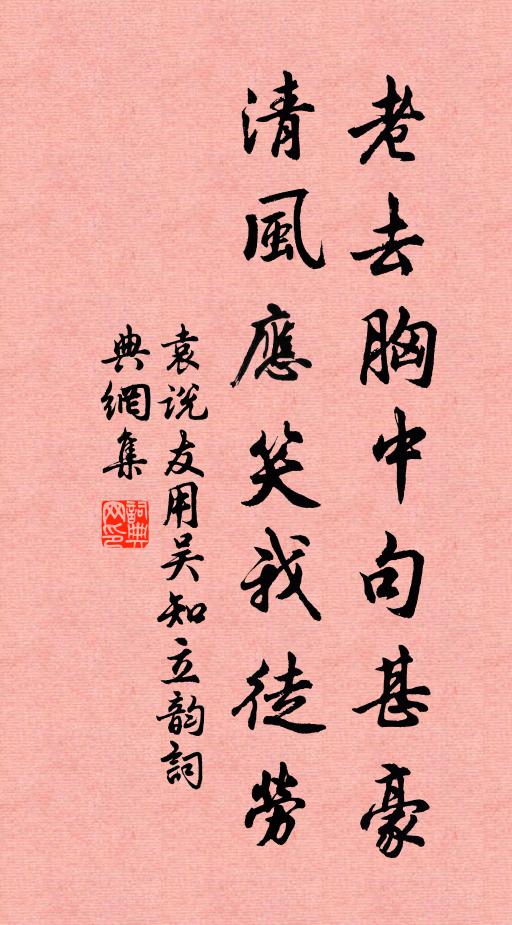 老去胸中句甚豪
清風應笑我徒勞
袁说友用吴知立韵詞
典網集
詞典网印